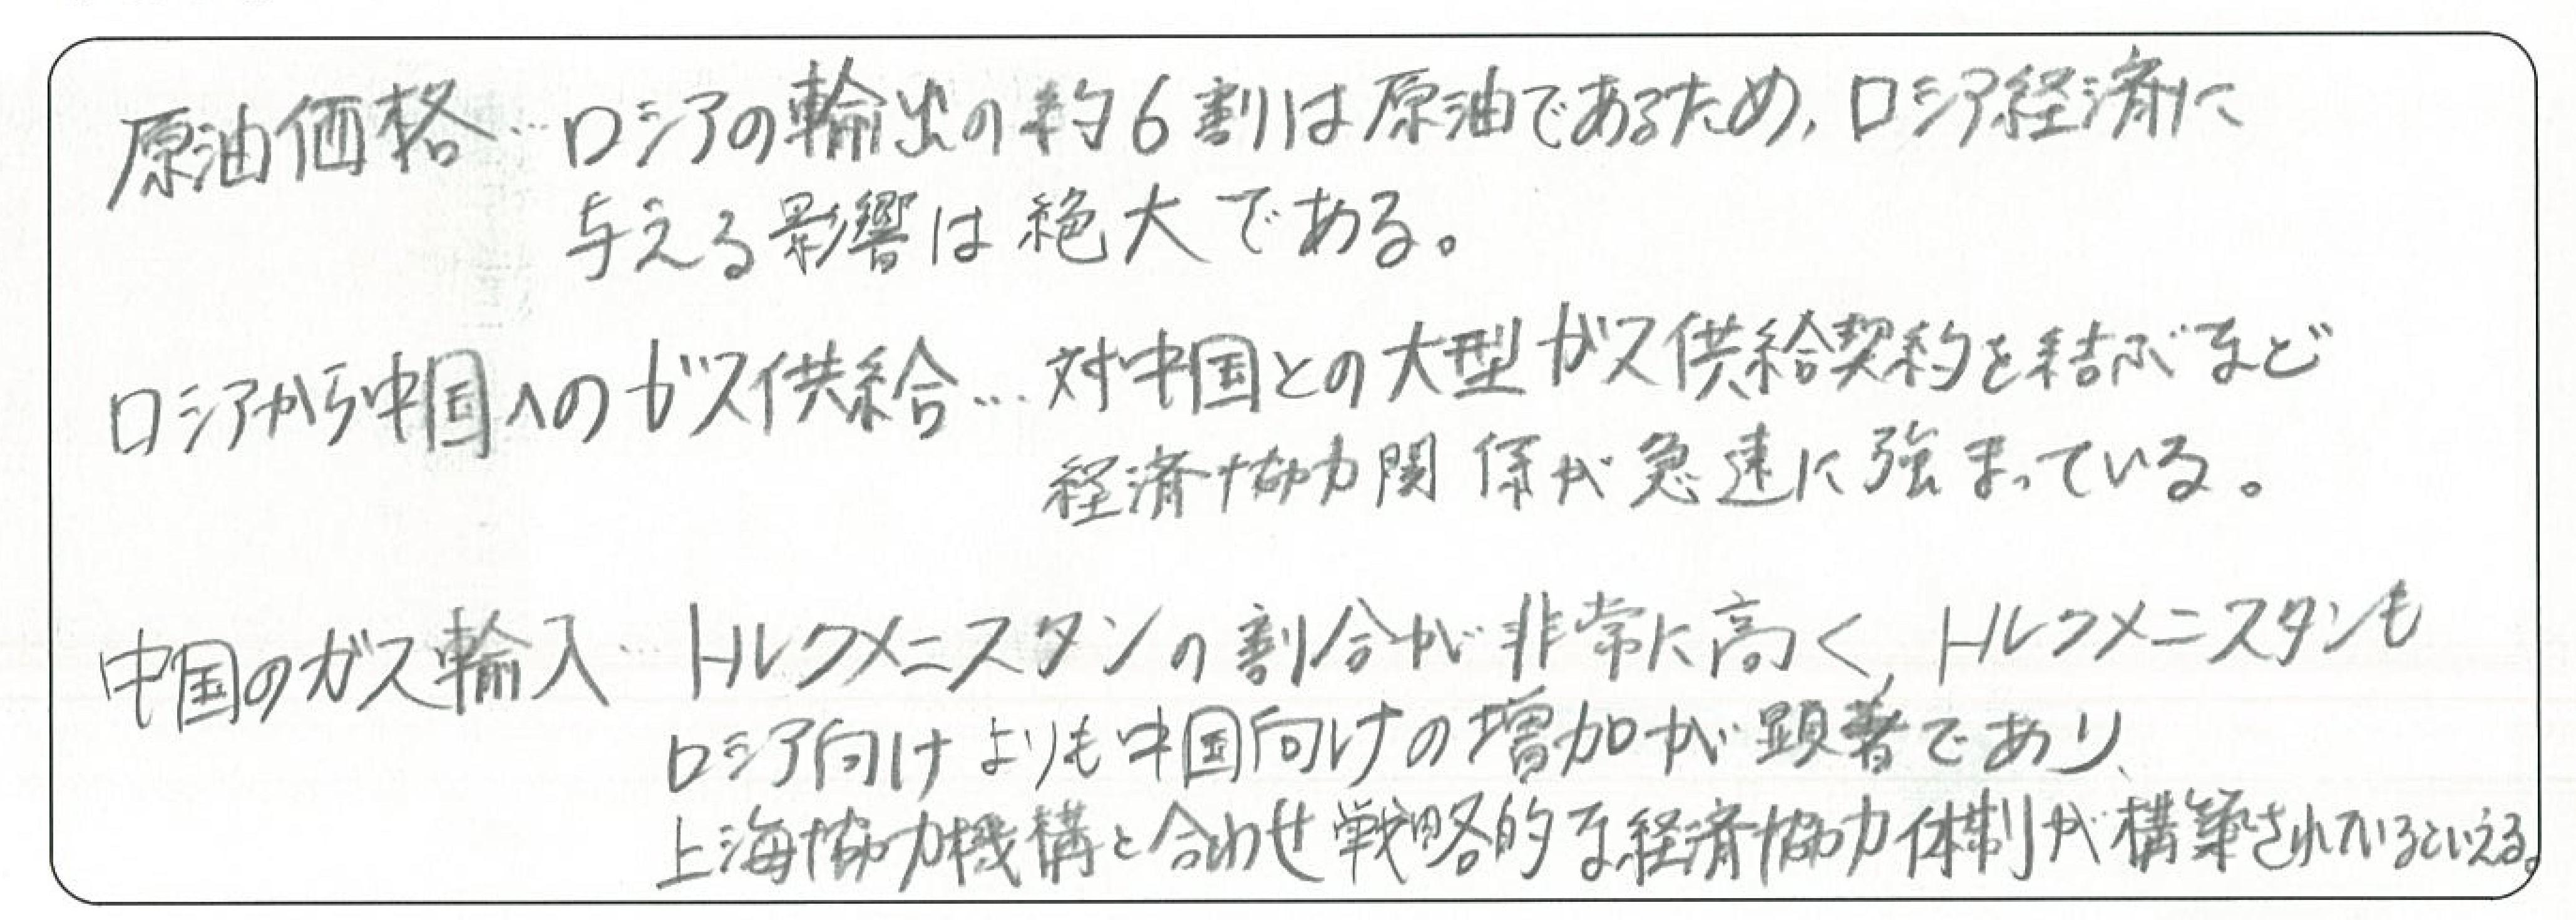 原油価格…ロシアの輸出の約6割は原油であるため、ロシア経済に
与える影響は絶大である。
ロシアから中国へのガス供給…対中国との大型ガス供給契約を結ぶなど
経済協力関係が急速に強まっている。
中国のガス輸入…トルクメニスタンの割合が非常に高く、トルクメニスタンも
ロシア向けよりも中国向けの増加が顕著であり、
上海協力機構と合わせ戦略的な経済協力体制が構築されているといえる。